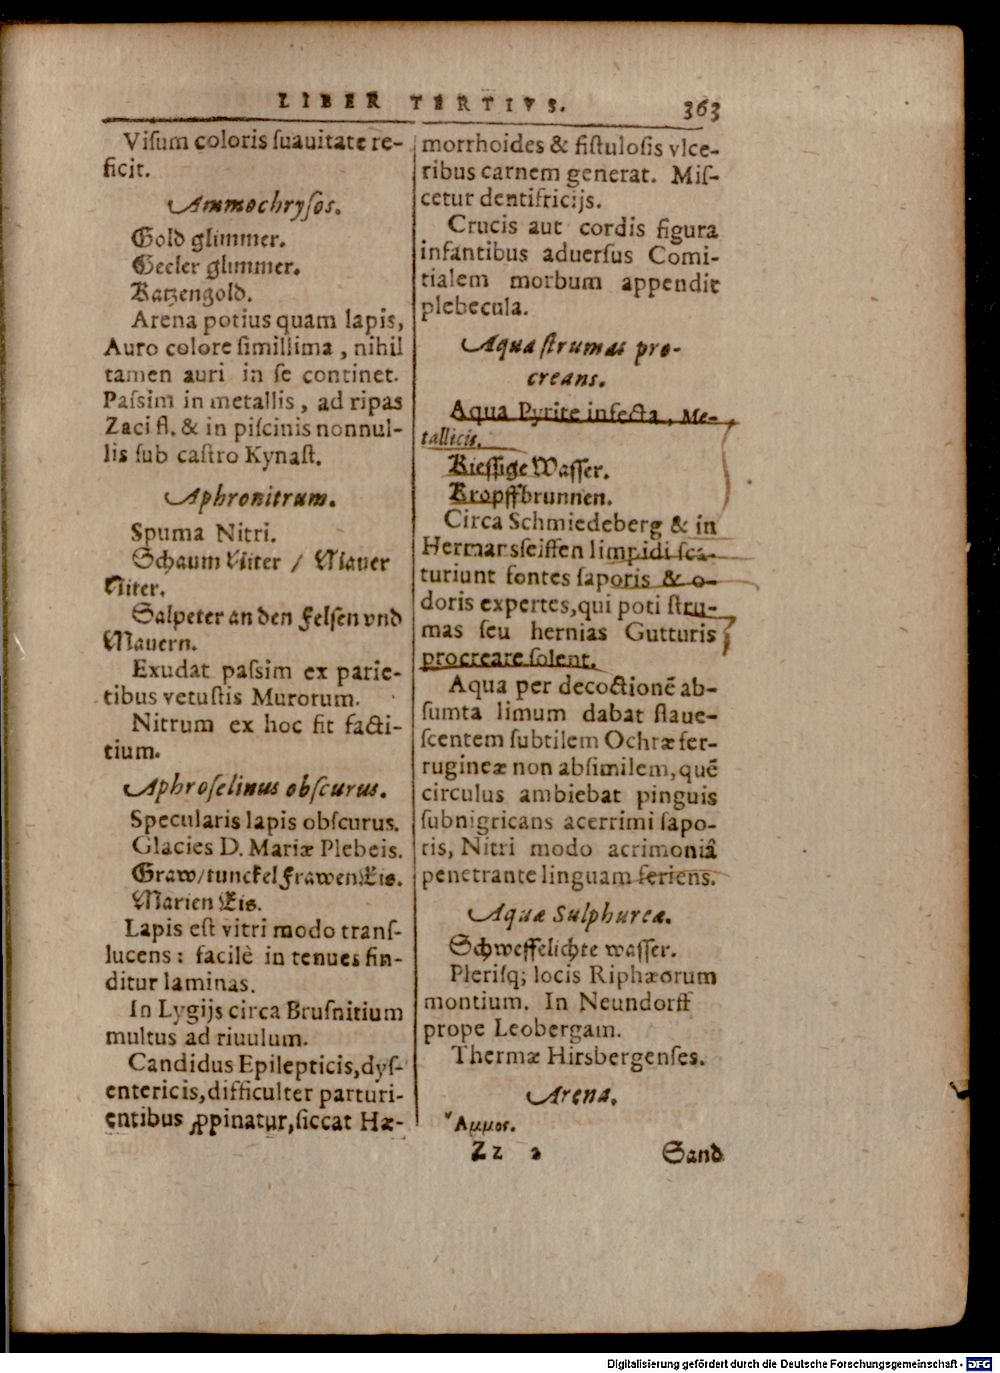 LIBER TERTIVS. 363
Viſum coloris ſuauitate re-
ficit.
Ammochryſos.
Gold glimmer.
Geeler glimmer.
Katzengold.
Arena potius quam lapis,
Auro colore ſimillima, nihil
tamen auri in ſe continet.
Paſsim in metallis, ad ripas
Zaci fl. & in piſcinis nonnul-
lis ſub caſtro Kynaſt.
Aphronitrum.
Spuma Nitri.
Schaum Niter / Mauer
Niter.
Salpeter an den Felſen vnd
Mauern.
Exudat paſsim ex parie-
tibus vetuſtis Murorum.
Nitrum ex hoc fit facti-
tium.
Aphroſelinus obſcurus.
Specularis lapis obſcurus.
Glacies D. Mariæ Plebeis.
Graw/tunckel Frawen Eis.
Marien Eis.
Lapis eſt vitri modo tranſ-
lucens: facilè in tenues fin-
ditur laminas.
In Lygijs circa Bruſnitium
multus ad riuulum.
Candidus Epilepticis, dyſ-
entericis, difficulter parturi-
entibus ꝓpinatur, ſiccat Hæ-
morrhoides & fiſtuloſis vlce-
ribus carnem generat. Miſ-
cetur dentifricijs.
Crucis aut cordis figura
infantibus aduerſus Comi-
tialem morbum appendit
plebecula.
Aqua ſtrumas pro-
creans.
Aqua Pyrite infecta, Me-
tallicis.
Kieſſige Waſſer.
Kropffbrunnen.
Circa Schmiedeberg & in
Hermansſeiffen limpidi ſca-
turiunt fontes ſaporis & o-
doris expertes, qui poti ſtru-
mas ſeu hernias Gutturis
procreare ſolent.
Aqua per decoctionē ab-
ſumta limum dabat flaue-
ſcentem ſubtilem Ochræ fer-
rugineæ non abſimilem, quē
circulus ambiebat pinguis
ſubnigricans acerrimi ſapo-
ris, Nitri modo acrimoniâ
penetrante linguam feriens.
Aquæ Sulphureæ.
Schweffelichte waſſer.
Pleriſq; locis Riphæorum
montium. In Neundorff
prope Leobergam.
Thermæ Hirsbergenſes.
Arena.
Ἄμμος.
Zz 2 Sand
Digitalisierung gefördert durch die Deutsche Forschungsgemeinschaft - DFG